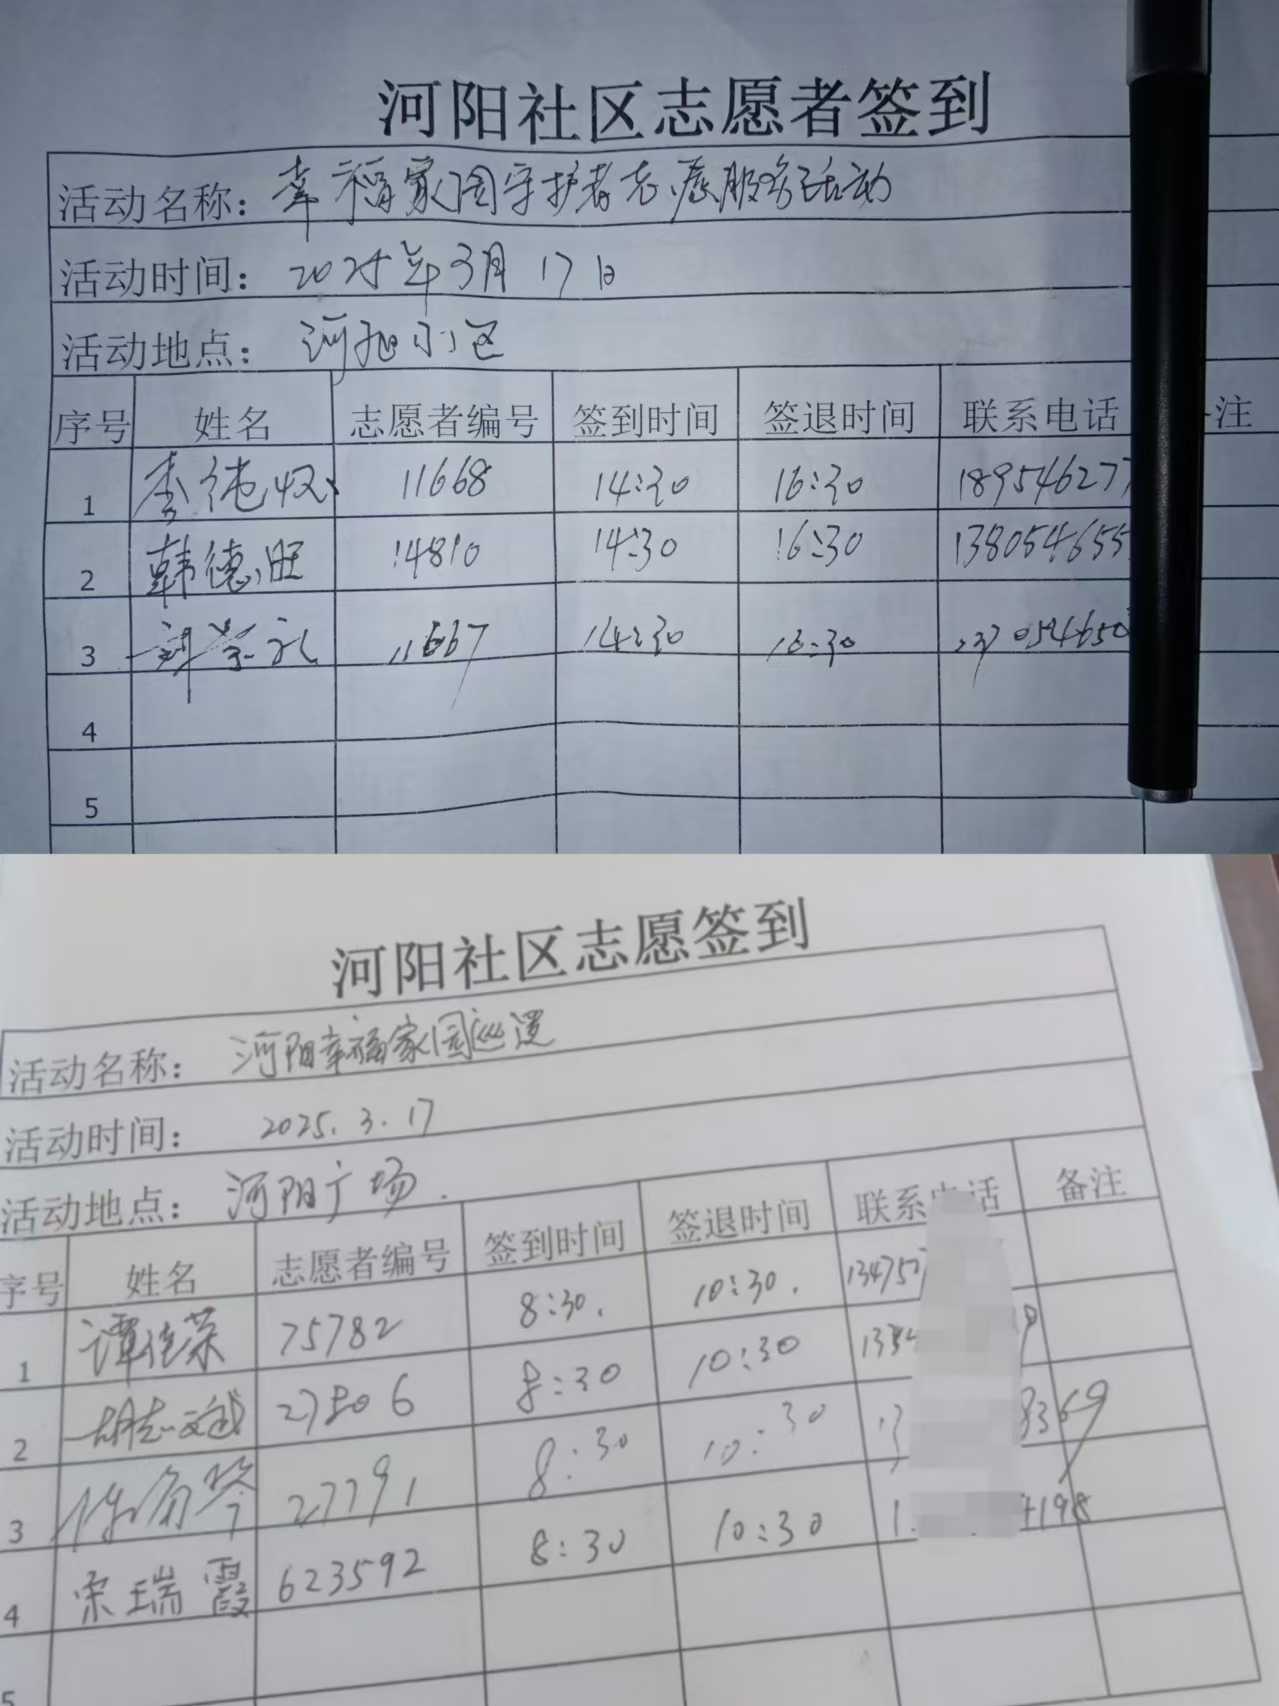 河阳社区志愿者签到
活动名称: 幸福家园守护者志愿服务活动
活动时间: 2025年3月17日
活动地点: 河阳小区
序号 姓名 志愿者编号 签到时间 签退时间 联系电话 注
1 李 11668 14:30 16:30 189546277
2 韩德旺 14810 14:30 16:30 138054655
3 11667 14:30 16:30 137054650
4
5
河阳社区志愿签到
活动名称: 河阳幸福家园巡逻
活动时间: 2025.3.17
活动地点: 河阳广场.
序号 姓名 志愿者编号 签到时间 签退时间 联系电话 备注
1 谭佳荣 75782 8:30. 10:30. 13475
2 胡志斌 27806 8:30 10:30 1384
3 27791 8:30 10:30 8369
4 宋瑞霞 623592 8:30 10:30 1 4198
5